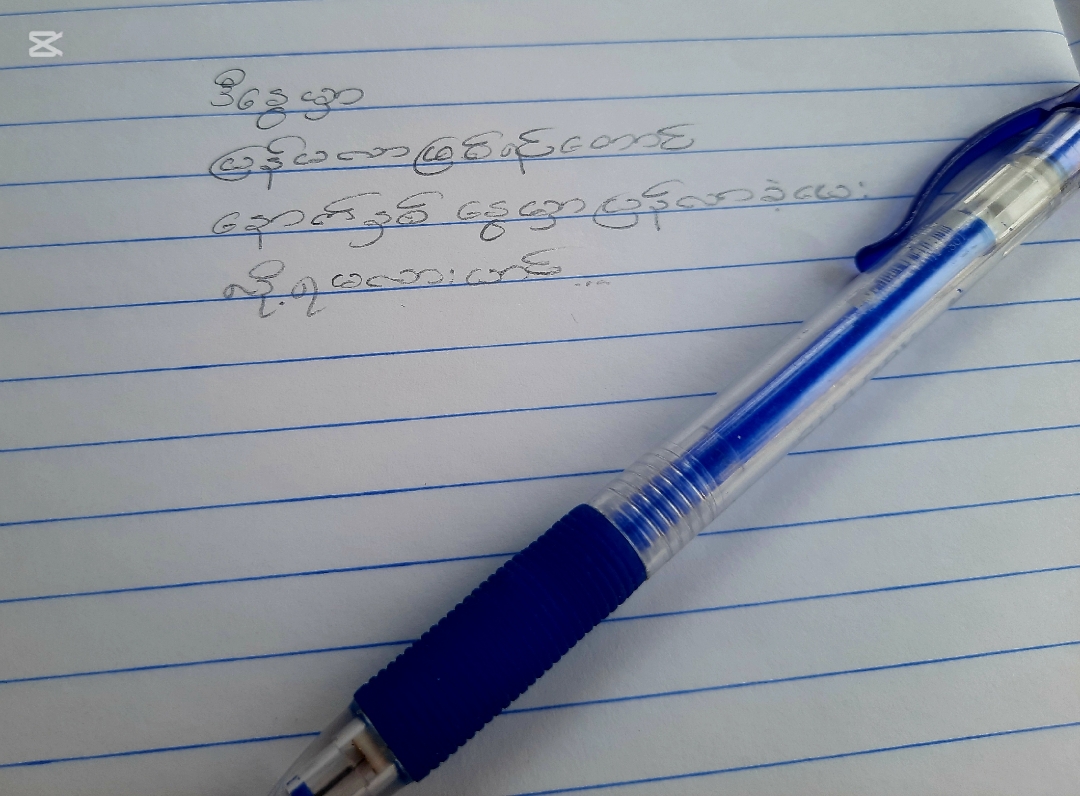 ဒီနွေမှာ
ပြန်မလာဖြစ်ရင်တောင်
နောက်နှစ် နွေမှာပြန်လာခဲ့ပေး
လို့ရမလားဟင်....